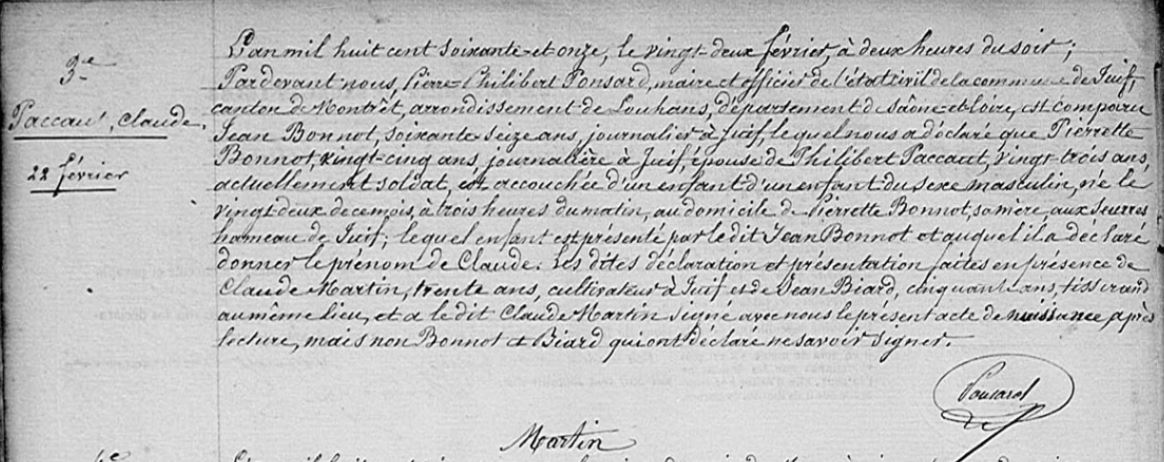 3e
Paccaut, Claude.
22 février
L'an mil huit cent soixante-et onze, le vingt-deux février, à deux heures du soir ;
Pardevant nous, Pierre-Philibert Ponsard, maire et officier de l'état civil de la commune de Juif,
canton de Montrêt, arrondissement de Louhans, département de Saône-et-Loire, est comparu
Jean Bonnot, soixante seize ans, journalier à Juif, lequel nous a déclaré que Pierrette
Bonnot, vingt-cinq ans, journalière à Juif, épouse de Philibert Paccaut, vingt-trois ans,
actuellement soldat, est accouchée d'un enfant d'un enfant du sexe masculin, né le
vingt-deux de ce mois, à trois heures du matin, au domicile de Pierrette Bonnot, sa mère, aux
hameau de Juif ; lequel enfant est présenté par le dit Jean Bonnot et auquel il a déclaré
donner le prénom de Claude. Les dites déclaration et présentation faites en présence de
Claude Martin, trente ans, cultivateur à Juif et de Jean Biard, cinquante ans, tisserand
au même lieu, et a le dit Claude Martin signé avec nous le présent acte de naissance, après
lecture, mais non Bonnot et Biard qui ont déclaré ne savoir signer.
Ponsard
Martin
4e